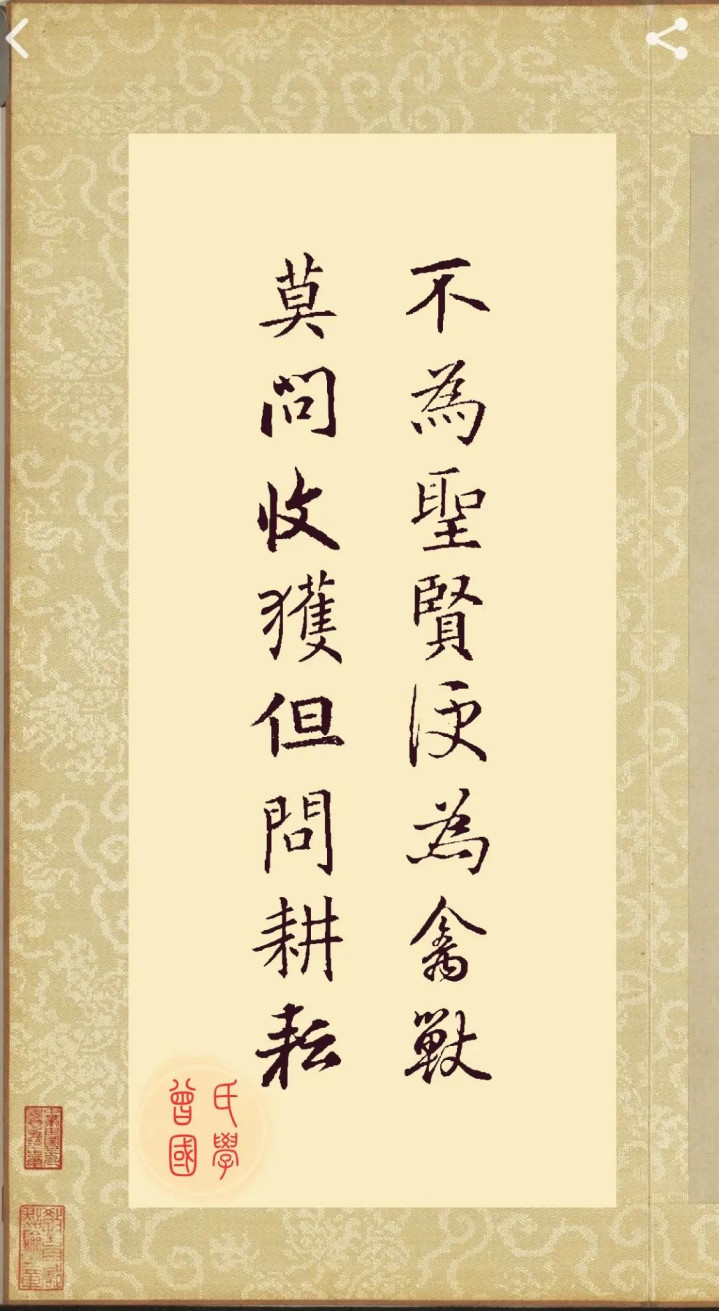 不為聖賢便為禽獸
莫問收獲但問耕耘
曾國
氏學